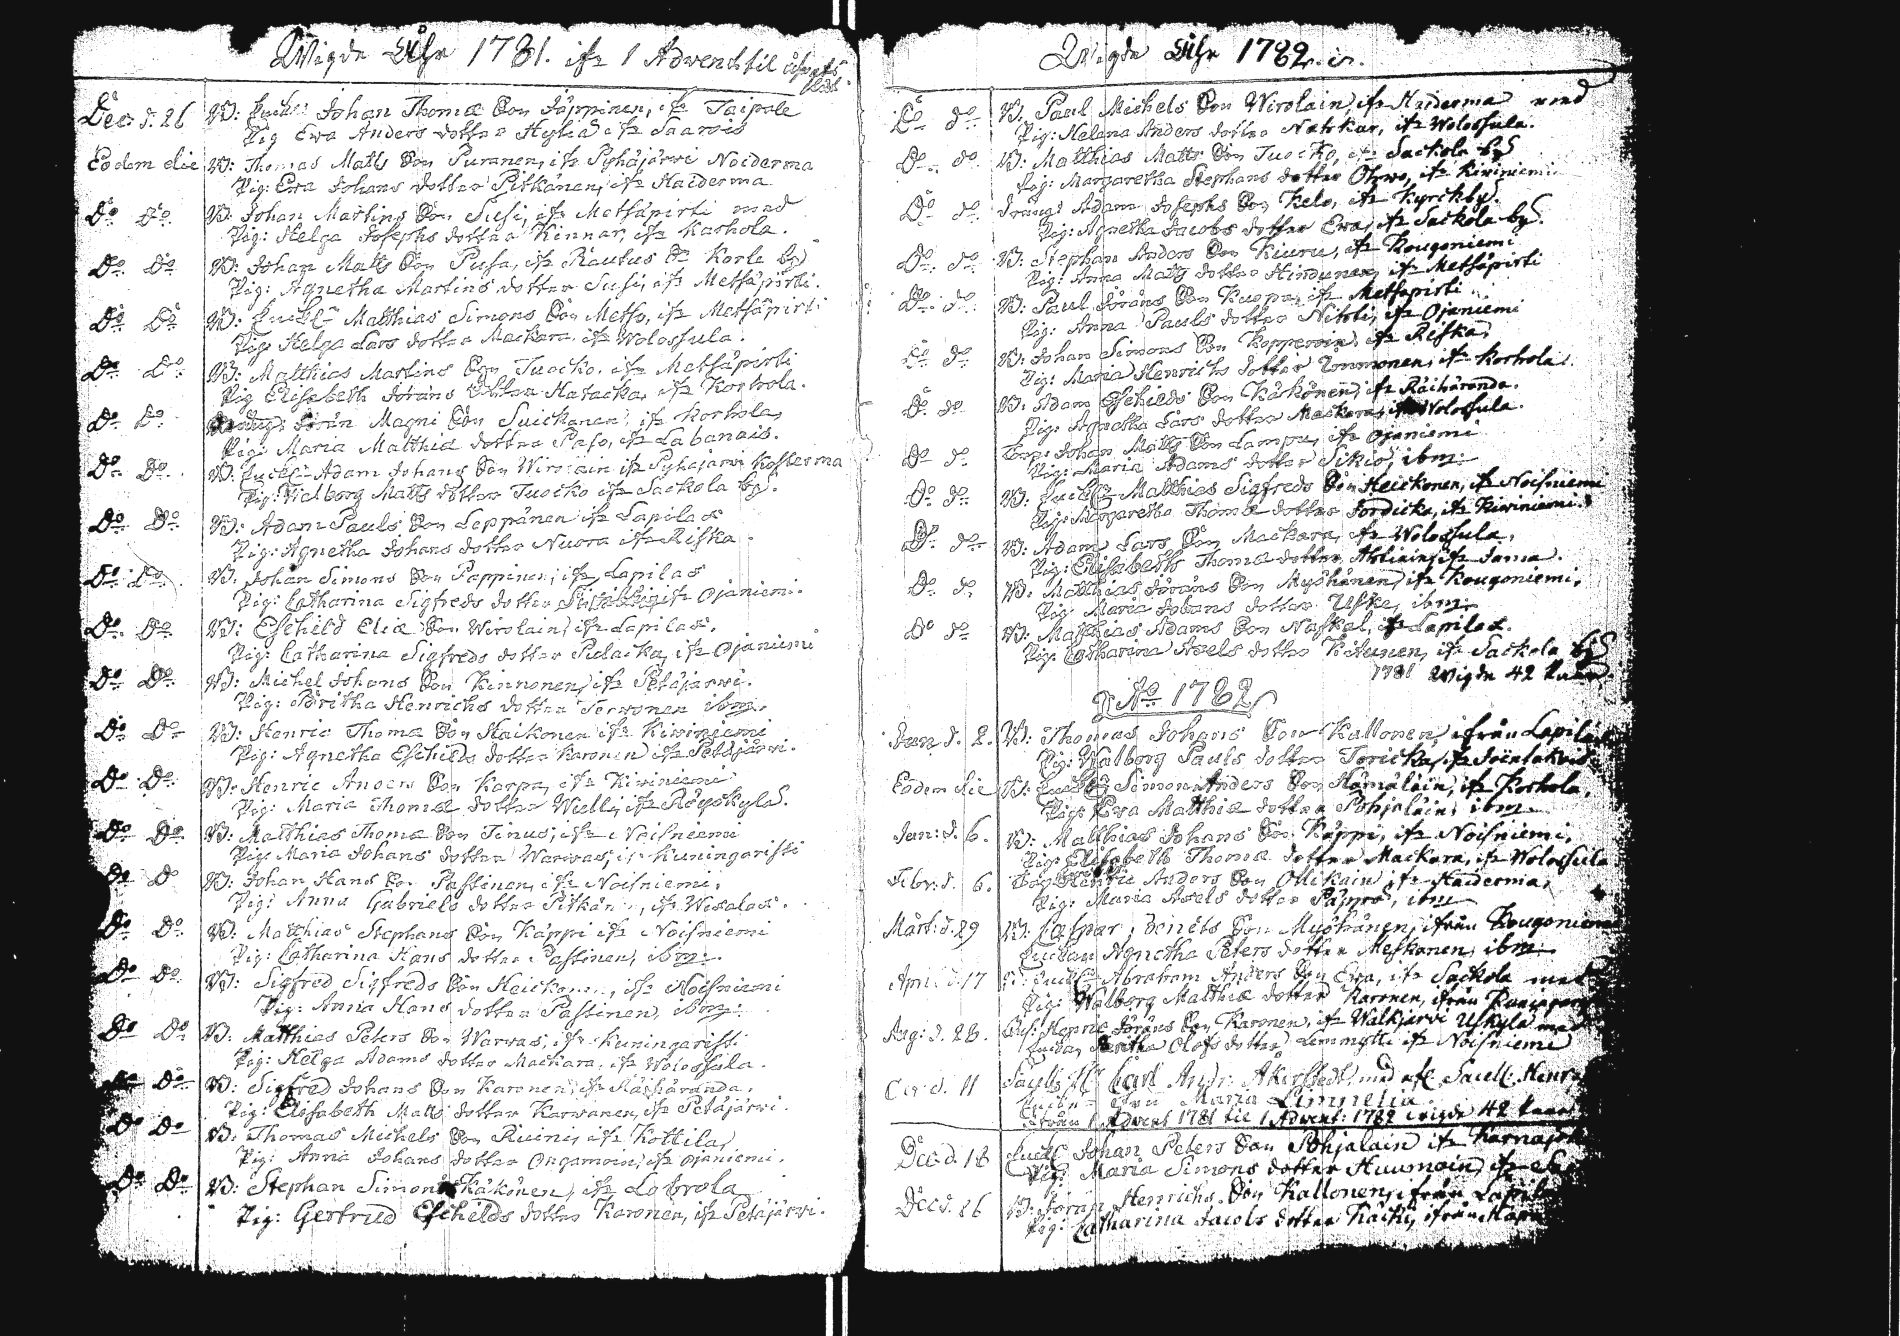 Wigde Åhr 1781. ifr 1 Advent til
Dec: d. 26 W: Johan Thomæ Son Jäppinen, ifr Taipale
Pig Ewa Anders dotter Hyltiä ifr Saarois
Eodem die W: Thomas Matts Son Puranen, ifr Pyhäjärwi Noiderma
Pig: Ewa Johans dotter Pitkänen, ifr Haiderma
Do Do W: Johan Martins Son Susi, ifr Metsäpirti med
Pig: Helga Josephs dotter Kinnar, ifr Korhola.
Do Do W: Johan Matts Son Pusa, ifr Räutus Sn Korle by
Pig: Agnetha Martins dotter Susi, ifr Metsäpirti.
Do Do W: Matthias Simons Son Metso, ifr Metsäpirti
Pig Helga Lars dotter Mackara, ifr Wolossula.
Do Do W: Matthias Martins Son Tuocko, ifr Metsäpirti
Pig Elisabeth Jöräns dotter Hatacka, ifr Korhola.
Do Do Jörän Magni Son Suickanen, ifr Korhola,
Pig: Maria Matthiæ dotter Paso, ifr Labanais.
Do Do W: Adam Johans Son Wirolain ifr Pyhäjärwi Kosterma
Pig: Walborg Matts dotter Tuocko ifr Sackola by.
Do Do W: Adam Pauls Son Leppänen ifr Lapilax
Pig: Agnetha Johans dotter Nuora ifr Riska.
Do Do W: Johan Simons Son Pappinen, ifr Lapilax
Pig: Catharina Sigfreds dotter ifr Ojaniemi.
Do Do W: Eschild Eliæ Son Wirolain, ifr Lapilax.
Pig: Catharina Sigfreds dotter Pulacka, ifr Ojaniemi
Do Do W: Michel Johans Son Kinnonen, ifr Petäjärwi.
Pig: Britha Henrichs dotter Terwonen ibm.
Do Do W: Henric Thomæ Son Haikonen ifr Kiwiniemi
Pig: Agnetha Eschilds dotter Karonen ifr Petäjärwi.
Do Do W: Henric Anders Son Karpa, ifr Kiwiniemi
Pig: Maria Thomæ dotter Wielle, ifr Röyskylä.
Do Do W: Matthias Thomæ Son Tinus, ifr Noisniemi
Pig: Maria Johans dotter Warwas, ifr Kuningaristi
Do Do W: Johan Hans Son Pastinen, ifr Noisniemi.
Pig: Anna Gabriels dotter ifr Wesalax.
Do Do W: Matthias Stephans Son Käppi ifr Noisniemi
Pig: Catharina Hans dotter Pastinen, ibm.
Do Do W: Sigfred Sigfreds Son ifr Noisniemi
Pig: Anna Hans dotter Pastinen, ibm.
Do Do W: Matthias Peters Son Warwas, ifr Kuningaristi
Pig: Helga Adams dotter Mackara, ifr Wolossula.
Do Do W: Sigfred Johans Son Karonen, ifr Räihäranda.
Pig: Elisabeth Matts dotter Karwanen, ifr Petäjärwi.
Do Do W: Thomas Michels Son Ruini, ifr Kottila,
Pig: Anna Johans dotter Ongamoin, ifr Ojaniemi.
Do Do W: Stephan Simons Käkönen, ifr
Pig: Gertrud Eschilds dotter Karonen, ifr Petäjärwi.
Wigde Åhr 1782.
Do do W: Paul Michels Son Wirolain, ifr Haiderma med
Pig: Helena Anders dotter ifr Wolossula.
Do do W: Matthias Matts Son Tuocko, ifr Sackola by
Pig: Margaretha Stephans dotter ifr Kiwiniemi.
Do do Dräng: Adam Josephs Son Kelo, ifr Kyrckby.
Pig: Agnetha Jacobs dotter Ewa, ifr Sackola by.
Do do W: Stephan Anders Son Kiuru, ifr Kougoniemi
Pig: Anna Matts dotter Hindunen, ifr Metsäpirti
Do do W: Paul Jöräns Son Kuopa, ifr Metsäpirti
Pig: Anna Pauls dotter ifr Ojaniemi
Do do W: Johan Simons Son Kopperoin, ifr Riska,
Pig: Maria Henrichs dotter Tommonen, ifr Korhola.
Do do W: Adam Eschilds Son Käkönen, ifr Räihäranda.
Pig: Agnetha Lars dotter Mackara, ifr Wolossula.
Do do Johan Matts Son Lampu, ifr Ojaniemi
Pig: Maria Adams dotter Sikiö, ibm.
Do do W: Matthias Sigfreds Son Heickonen, ifr Noisniemi
Pig: Margaretha Thomæ dotter Tordicka, ifr Kiwiniemi.
Do do W: Adam Lars Son Mackara, ifr Wolossula,
Pig: Elisabeth Thomæ dotter ifr Jama.
Do do W: Matthias Jöräns Son Myöhänen, ifr Kougoniemi.
Pig: Maria Johans dotter Uske, ibm.
Do do W: Matthias Adams Son Naskal, ifr Lapilax.
Pig: Catharina Axels dotter ifr Sackola by
1781 Wigde 42 Paar.
Ao 1782
Jan: d. 2. W: Thomas Johans Son Kallonen, ifrån Lapilax
Pig: Walborg Pauls dotter Toricka, ifr
Eodem die W: Simon Anders Son Hämäläin, ifr Korhola,
Pig: Ewa Matthiæ dotter Pohjaläin, ibm.
Jan: d. 6. W: Matthias Johans Son Käppi, ifr Noisniemi,
Pig: Elisabeth Thomæ dotter Mackara, ifr Wolossula
Febr: d. 6. Henric Anders Son Ollikain, ifr Haiderma,
Pig: Maria Axels dotter Päppro, ibm
Mart: d. 29 W: Caspar Son Myöhänen, ifrån Kougoniemi
Agnetha Peters dotter Meskanen, ibm
April d. 17 Abraham Anders Son Ewa, ifr Sackola med
Pig: Walborg Matthiæ dotter Karonen, ifrån
Aug: d. 28. Jöräns Son Karonen, ifr Walkjärwi Uskylä med
Britha Olofs dotter Lemmytti ifr Noisniemi
d. 11 Carl Andr: Åkerstedt, med
Maria Limnelia.
ifrån 1 Advent 1781 til 1 Advent: 1782 wigde 42 Paar
Dec: d. 18 Johan Peters Son Pohjalain ifr
Pig: Maria Simons dotter Huumoin, ifr
Dec: d. 26 W: Jörän Henrichs Son Kallonen, ifrån
Pig: Catharina Jacobs dotter Käcki, ifrån